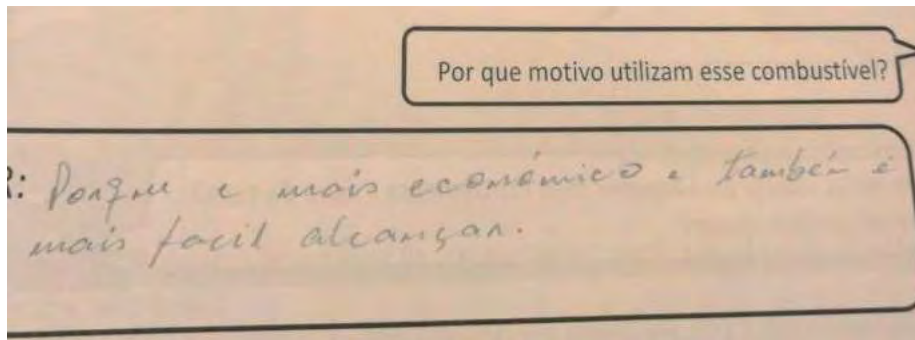 Por que motivo utilizam esse combustível?
R: Porque e mais económico e também é
mais facil alcançar.